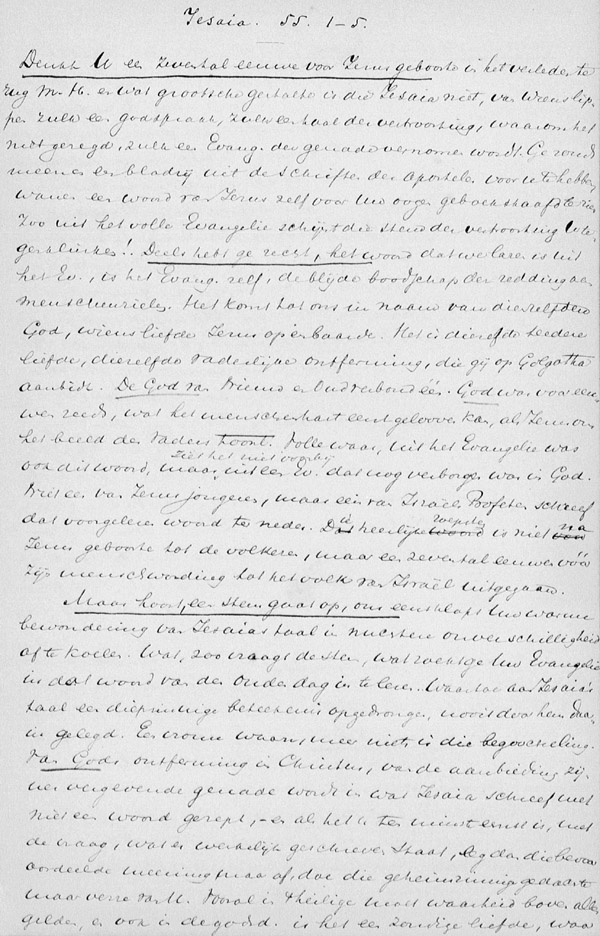 Jesaia. 55. 1-5.
Denkt U een zevental eeuwen voor Jezus geboorte in het verleden te
rug M. H. en wat grootsche gestalte is die Jesaia niet, van wiens lip-
pen zulk een godspraak, zulk een taal der vertroosting, waarom het
niet gezegd, zulk een Evang. der genade vernomen wordt. Ge zoudt
meenen een bladzij uit de schriften der Apostelen voor u te hebben
wanen een woord van Jezus zelf voor Uw oogen geboekstaafd te zien
Zoo uit het volle Evangelie schijnt die stem der vertroosting U te-
gen te klinken! Deels hebt ge recht, het woord dat we lazen is uit
het Ev., is het Evang. zelf, de blijde boodschap der redding aan
menschenzielen. Het komt tot ons in naam van dienzelfden
God, wiens liefde Jezus openbaarde. Het is dezelfde teedere
liefde, diezelfde vaderlijke ontferming, die gij op Golgotha
aanbidt. De God van Nieuw en Oud verbond is één. God was voor eeu-
wen reeds, wat het menschenhart eerst gelooven kan, als Jezus ons
het beeld des Vaders toont. Volle waar, uit het Evangelie was
ook dit woord, maar, ziet het niet voorbij uit een Ev. dat nog verborgen was in God.
Niet een van Jezus jongeren, maar een van Israëls Profeten schreef
dat voorgelezen woord ter neder. Die heerlijke roepstem is niet na
Jezus geboorte tot de volkeren, maar een zevental eeuwen vóór
zijn menschwording tot het volk van Israël uitgegaan.
Maar hoort, een stem gaat op, om eensklaps Uw warme
bewondering van Jesaia's taal in nuchtere onverschilligheid
af te koelen. Wat, zoo vraagt de stem, wat zoekt ge Uw Evangelie
in dat woord van den ouden dag in te lezen. Waartoe aan Jesaia's
taal een diepzinnige beteekenis opgedrongen, nooit door hem daar
in gelegd. Een vrome waan, meer niet, is die begoocheling.
Van Gods ontferming in Christus, van de aanbieding zij-
ner vergevende genade wordt in wat Jesaia schreef met
niet een woord gerept, - en als het U ten minste ernst is, met
de vraag, wat er werkelijk geschreven staat, leg dan die bevoor
oordeelde meening maar af, doe die geheimzinnige gedachte
maar verre van U. Vooral in 't heilige moet waarheid boven alles
gelden, en ook in de godsd. is het een zondige liefde, waar